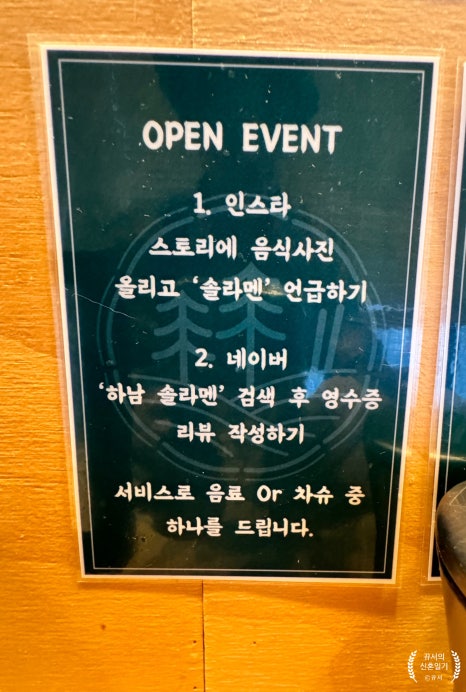 OPEN EVENT
1. 인스타
스토리에 음식사진
올리고 ‘솔라멘’ 언급하기
2. 네이버
‘하남 솔라멘’ 검색 후 영수증
리뷰 작성하기
서비스로 음료 Or 차슈 중
하나를 드립니다.
뀨시의
신혼일기
©뀨시